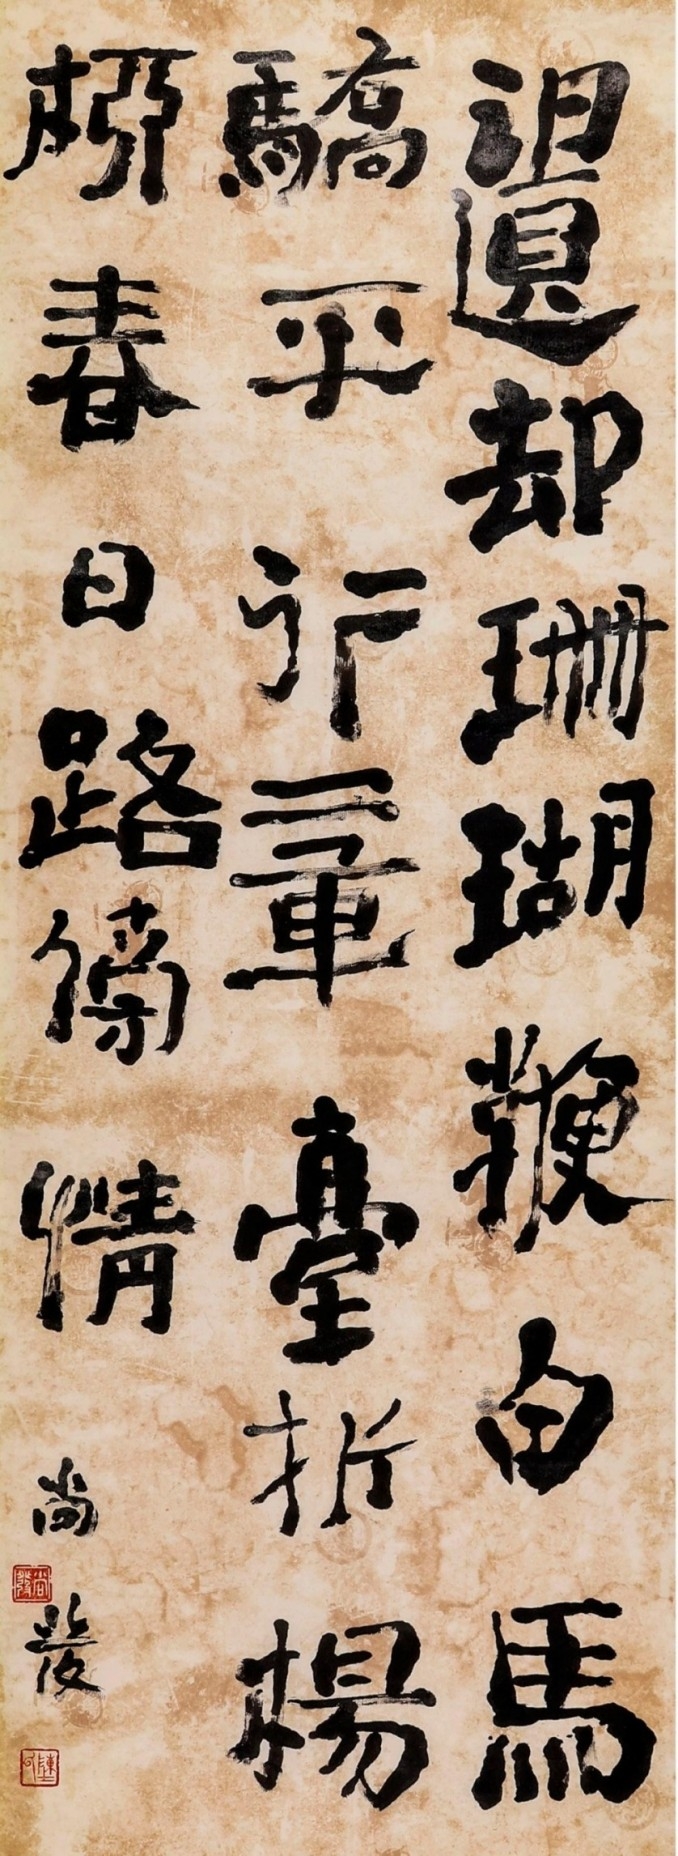 遺却珊瑚鞭白馬
驕不行章臺折楊
柳春日路傍情
尚